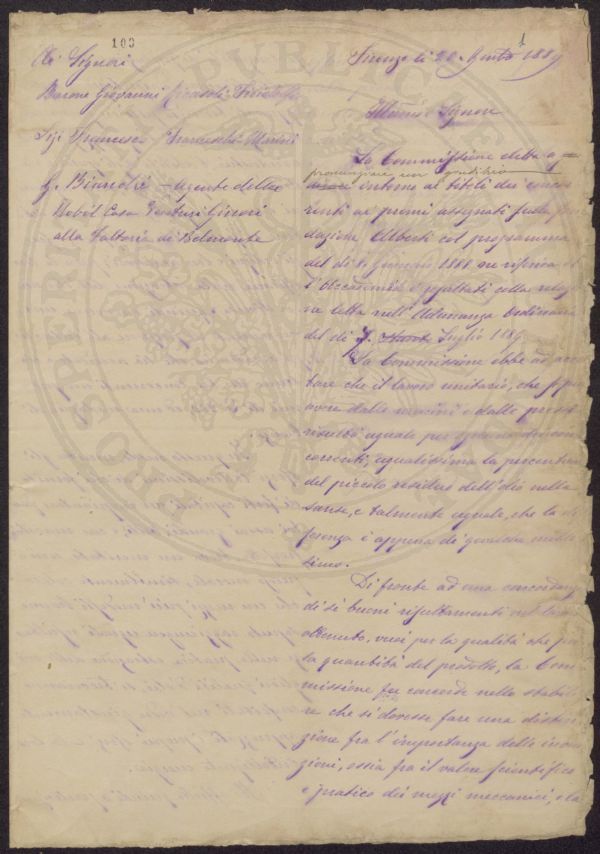 103
1
Ai Signori
Barone Giovanni
Sig. Francesco Franceschi Marini
G. Bianchi – agente della
Nobil Casa Venturi Ginori
alla Fattoria di Belmonte
Firenze li 20 Agosto 1889
Signore
La Commissione eletta a
pronunziare un giudizio
intorno ai titoli dei concor
renti ai premi assegnati sulla Fon
dazione Alberti col programma
del dì 8 Gennaio 1888 ne riferiva al
l'Accademia i resultati colla relazio
ne letta nell'Adunanza Ordinaria
del dì 7. Luglio 1889.
La Commissione ebbe ad accer
tare che il lavoro unitario, che si può
avere dalle macini e dalle presse
risultò uguale per ognuno dei con
correnti, ugualissima la percentuale
del piccolo residuo dell'olio nella
sansa, e talmente uguale, che la dif
ferenza è appena di qualche mille
simo.
Di fronte ad una concordanza
di sì buoni resultamenti nel lavoro
ottenuto, vuoi per la qualità che per
la quantità del prodotto, la Com
missione fu concorde nello stabili
re che si dovesse fare una distin
zione fra l'importanza delle inven
zioni, ossia fra il valore scientifico
e pratico dei mezzi meccanici, e la